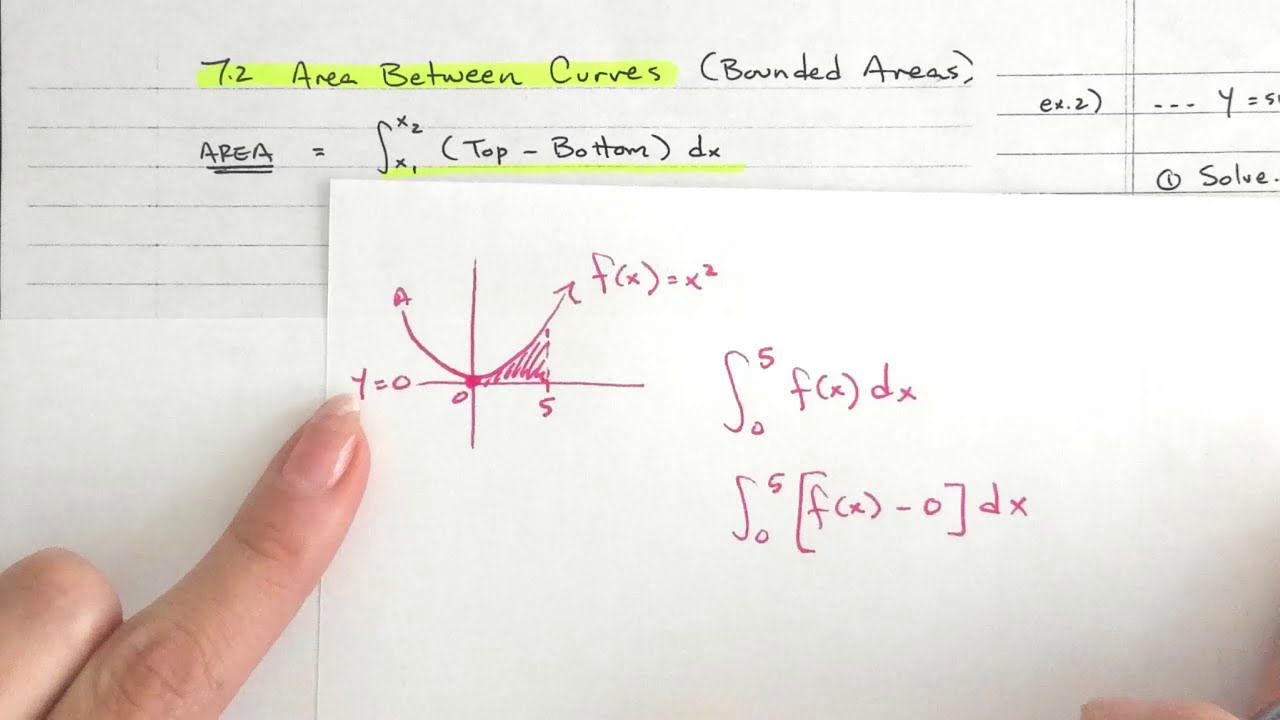 7.2 Area Between Curves (Bounded Areas)
AREA = ∫ₓ₁ˣ² (Top - Bottom) dx
ex.2) --- Y =
① Solve.
f(x) = x²
Y = 0
0
5
∫₀⁵ f(x) dx
∫₀⁵ [f(x) - 0] dx